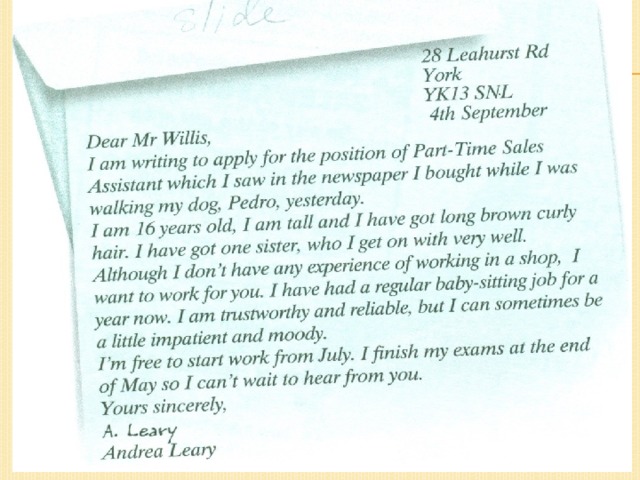 slide
28 Leahurst Rd
York
YK13 SNL
4th September
Dear Mr Willis,
I am writing to apply for the position of Part-Time Sales
Assistant which I saw in the newspaper I bought while I was
walking my dog, Pedro, yesterday.
I am 16 years old, I am tall and I have got long brown curly
hair. I have got one sister, who I get on with very well.
Although I don't have any experience of working in a shop, I
want to work for you. I have had a regular baby-sitting job for a
year now. I am trustworthy and reliable, but I can sometimes be
a little impatient and moody.
I'm free to start work from July. I finish my exams at the end
of May so I can't wait to hear from you.
Yours sincerely,
A. Leary
Andrea Leary